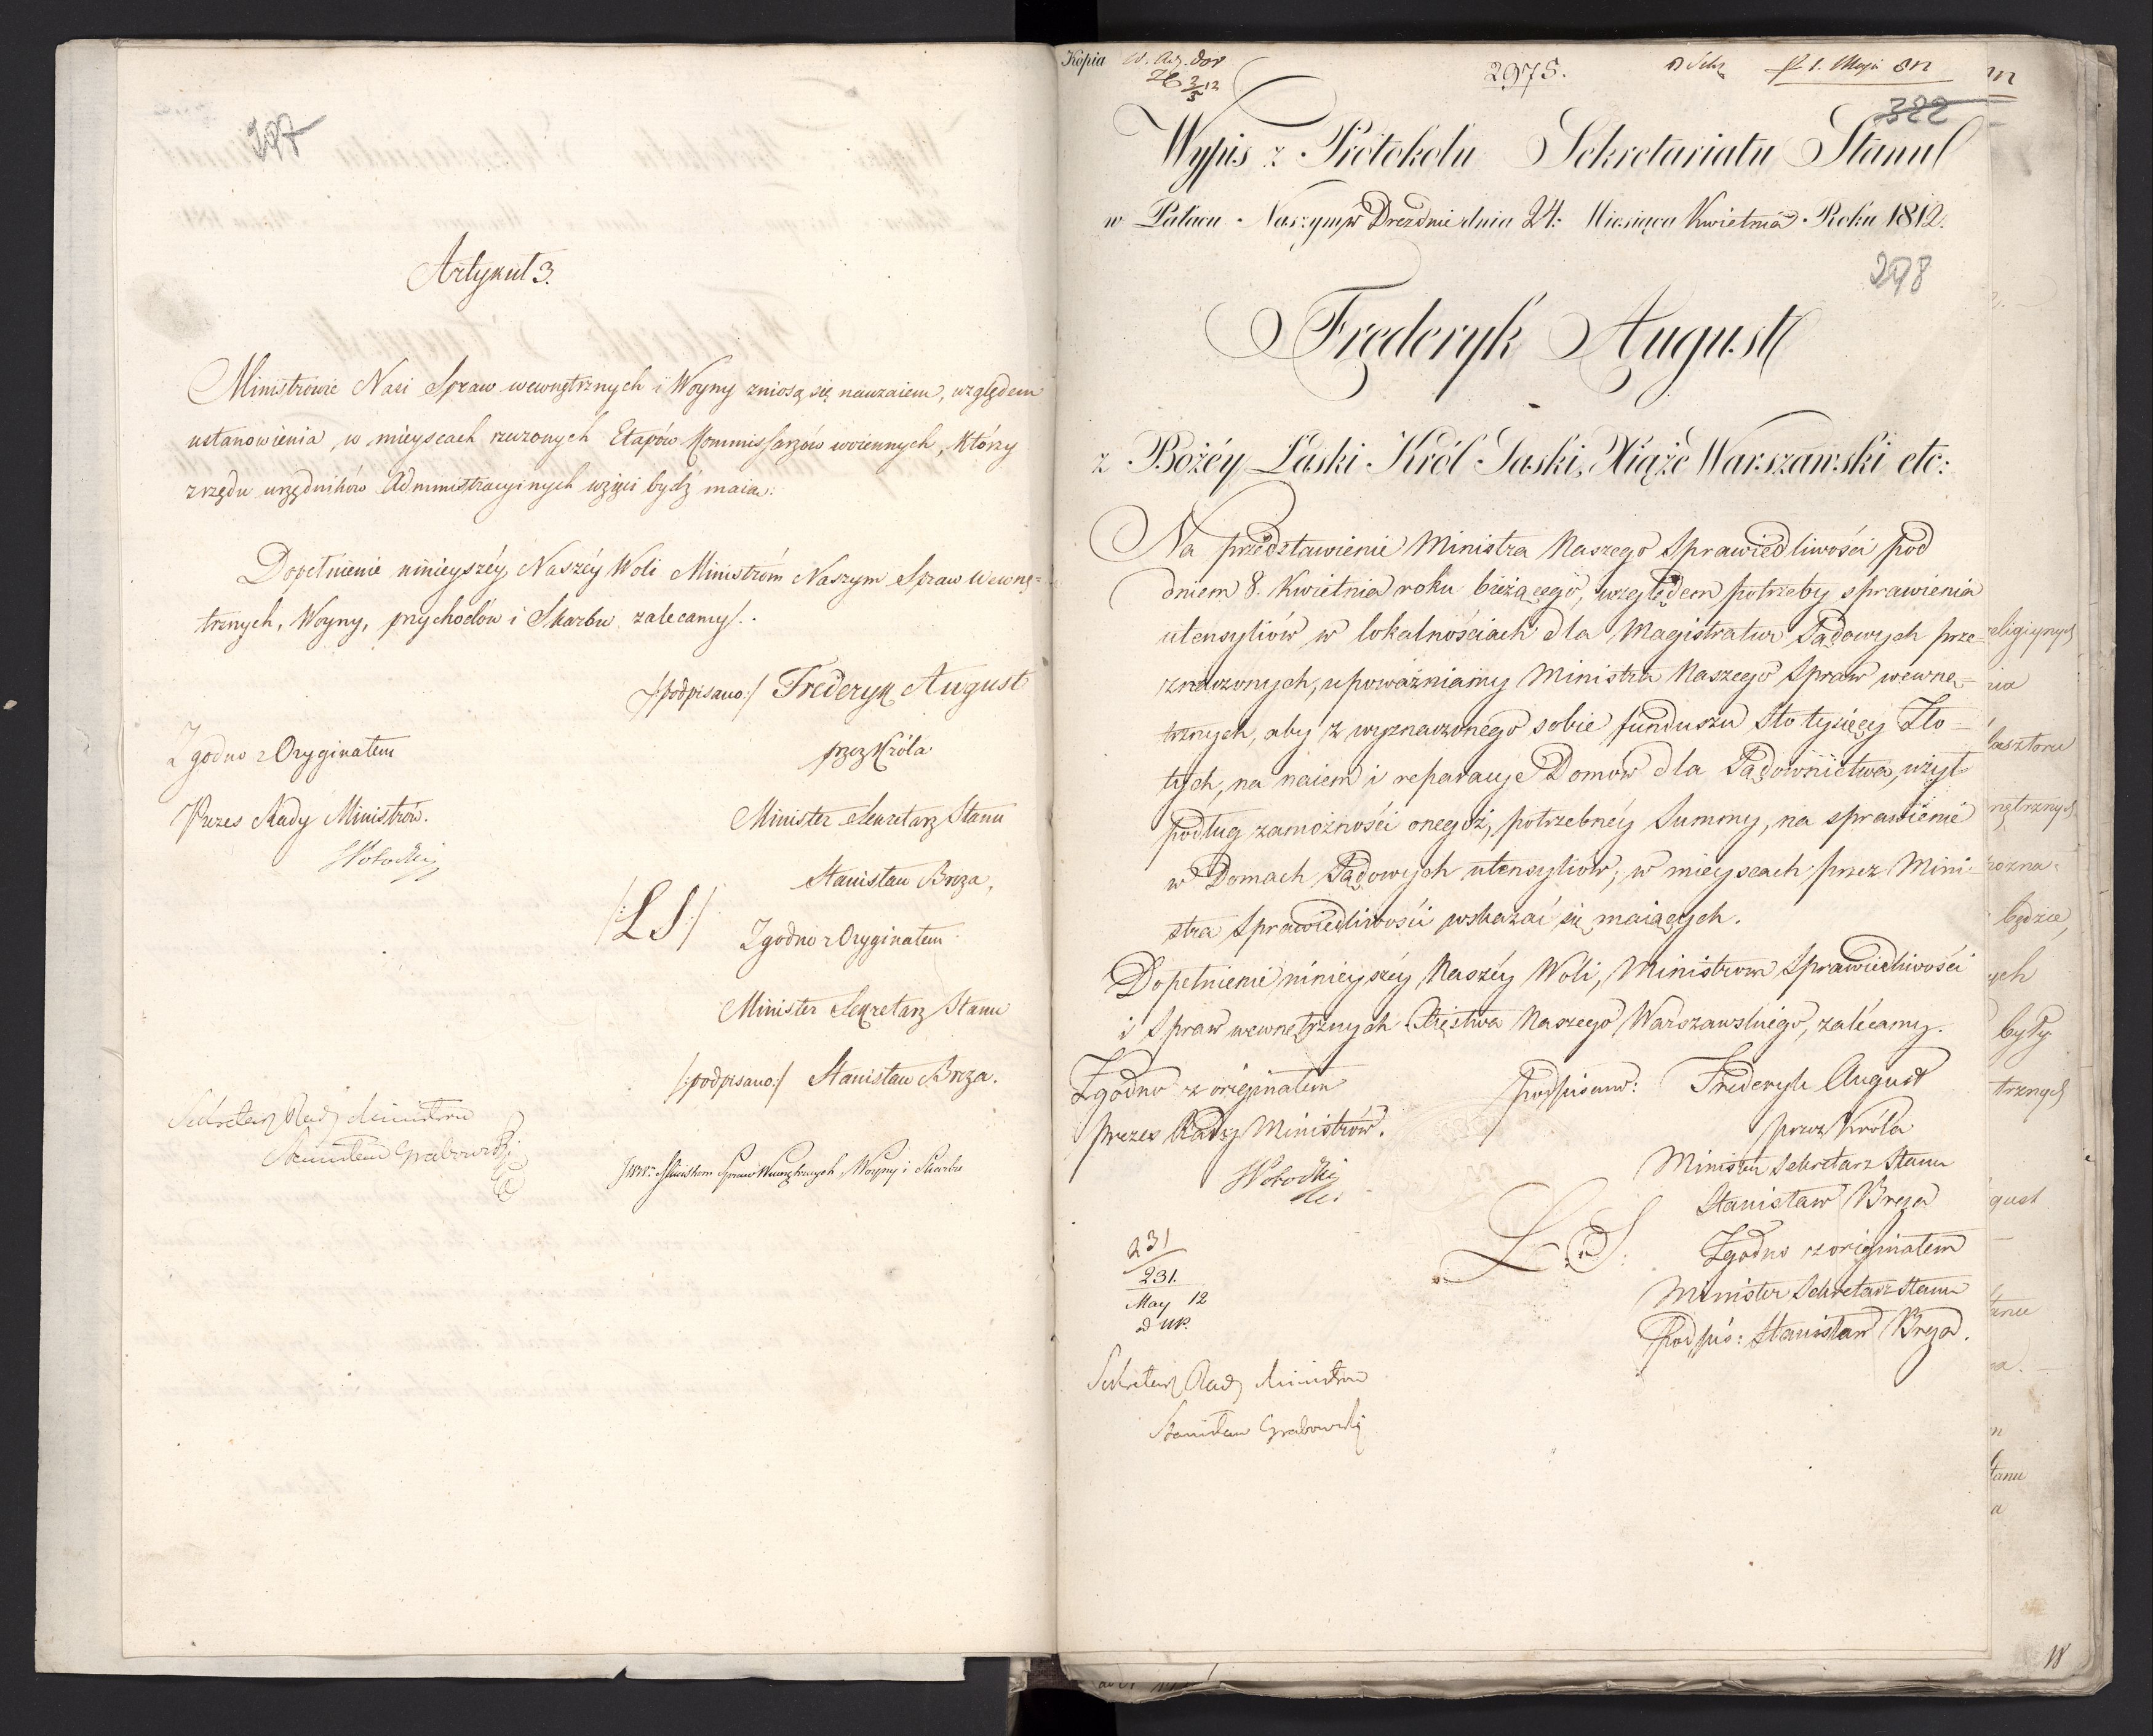 297
Artykuł 3.
Ministrowie Nasi Spraw wewnętrznych i Woyny zniosą się nawzaiem, względem
ustanowienia, w mieyscach rzeczonych Etapów Kommissarzów woiennych, którzy
z rzędu urzędników Administracyinych wzięci bydź maią.
Dopełnienie ninieyszéy Naszéy Woli Ministróm Naszym Spraw Wewnę=
trznych, Woyny, przychodów i Skarbu zalecamy.
/:podpisano:/ Frederyk August
przez Króla
Minister Sekretarz Stanu
Stanisław Breza,
/:LS:/
Zgodno z Oryginałem
Minister Sekretarz Stanu
/:podpisano:/ Stanisław Breza.
Zgodno z Oryginałem
Prezes Rady Ministrów.
Sekretarz Rady Ministrów
Stanisław Grabowski
JWW. Ministrom Spraw Wewnętrznych Woyny i Skarbu
Kopia
2975.
1. Maja 812
322
Wypis z Protokołu Sekretariatu Stanu
w Pałacu Naszym w Dreznie dnia 24. Miesiąca Kwietnia Roku 1812.
298
Frederyk August
z Bożéy Łaski Król Saski, Xiąże Warszawski etc:
Na przedstawienie Ministra Naszego Sprawiedliwości pod
dniem 8. Kwietnia roku bieżącego, względem potrzeby sprawienia
utensyliów w lokalnościach dla Magistratur Sądowych prze-
znaczonych, upoważniamy Ministra Naszego Spraw wewnę-
trznych, aby z wyznaczonego sobie funduszu Sto tysięcy Zło-
tych, na naiem i reparacye Domów dla Sądownictwa, użył
podług zamożności onegoż, potrzebnéy Summy, na sprawienie
w Domach Sądowych utensyliów, w mieyscach przez Mini-
stra Sprawiedliwości wskazać się maiących.
Dopełnienie ninieyszéy Naszéy Woli, Ministrom Sprawiedliwości
i Spraw wewnętrznych Xięstwa Naszego Warszawskiego, zalécamy.
Zgodno z originałem
prezes Rady Ministrów.
podpisano: Frederyk August
przez Króla
Minister Sekretarz Stanu
Stanisław Breza
L. S.
Zgodno z originałem
Minister Sekretarz Stanu
Podpis: Stanisław Breza.
231
231.
May 12
Sekretarz Rady Ministrów
Stanisław Grabowski
religiynych
nia
nętrznych
pozna-
będzie,
ych
były
trznych
gust
tanu
18